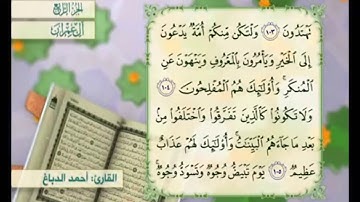 الجزء الرابع
آل عمران
تَهْتَدُونَ ١٠٣ وَلْتَكُن مِّنكُمْ أُمَّةٌ يَدْعُونَ
إِلَى الْخَيْرِ وَيَأْمُرُونَ بِالْمَعْرُوفِ وَيَنْهَوْنَ عَنِ
الْمُنكَرِ ۚ وَأُولَٰئِكَ هُمُ الْمُفْلِحُونَ ١٠٤
وَلَا تَكُونُوا كَالَّذِينَ تَفَرَّقُوا وَاخْتَلَفُوا مِن
بَعْدِ مَا جَاءَهُمُ الْبَيِّنَاتُ ۚ وَأُولَٰئِكَ لَهُمْ عَذَابٌ
عَظِيمٌ ١٠٥ يَوْمَ تَبْيَضُّ وُجُوهٌ وَتَسْوَدُّ وُجُوهٌ ۚ
القارئ: أحمد الدباغ